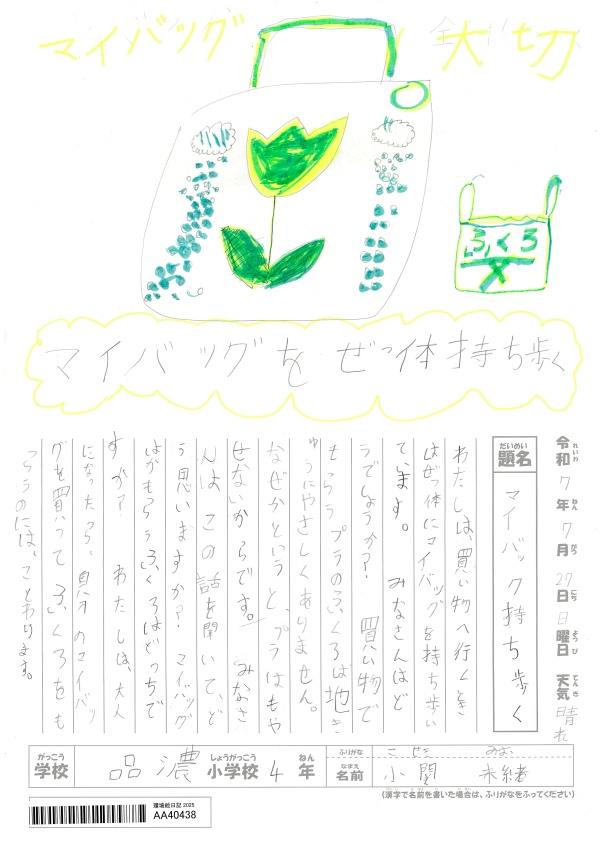 マイバッグ 大切
ふくろ
マイバッグをぜっ体持ち歩く
令和7年7月27日日曜日 天気 晴れ
れいわ ねん がつ にち ようび てんき
だいめい
題名
マイバック持ち歩く
わたしは、買い物へ行くとき
はぜっ体にマイバッグを持ち歩い
ています。 みなさんはど
うでしょうか? 買い物で
もらうプラのふくろは地き
ゅうにやさしくありません。
なぜかというと、プラはもや
せないからです。 みなさ
んはこの話を聞いて、ど
う思いますか? マイバッグ
はかもらうふくろはどっちで
すか? わたしは、大人
になったら、自分のマイバッ
グを買って ふくろをも
らうのには、ことわります。
がっこう しょうがっこう ねん
学校 品濃 小学校 4 年
ふりがな
なまえ
名前 小関 未緒
(漢字で名前を書いた場合は、ふりがなをふってください)
環境絵日記 2025
AA40438